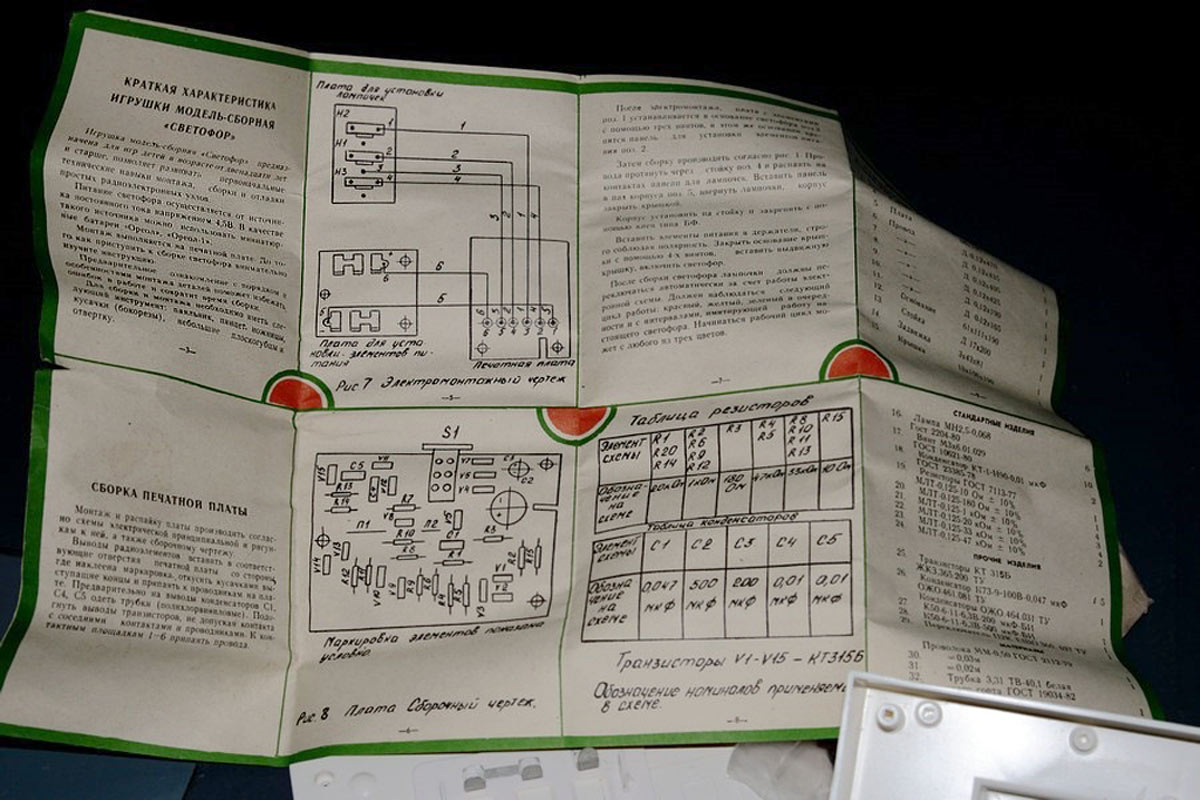 КРАТКАЯ ХАРАКТЕРИСТИКА
ИГРУШКИ МОДЕЛЬ-СБОРНАЯ
«СВЕТОФОР»
Игрушка модель-сборная «Светофор» предназ-
начена для игр детей в возрасте от двенадцати лет
и старше, позволяет развивать первоначальные
технические навыки монтажа, сборки и отладки
простых радиоэлектронных узлов.
Питание светофора осуществляется от источни-
ка постоянного тока напряжением 4,5В. В качестве
такого источника можно использовать миниатюр-
ные батареи «Ореол», «Ореол-1».
Монтаж выполняется на печатной плате. До то-
го как приступить к сборке светофора внимательно
изучите инструкцию.
Предварительное ознакомление с порядком и
особенностями монтажа деталей поможет избежать
ошибок в работе и сократит время сборки.
Для сборки и монтажа необходимо иметь сле-
дующий инструмент: паяльник, пинцет, ножницы,
кусачки (бокорезы), небольшие плоскогубцы и
отвертку.
—3—
Плата для установки
лампочек
Н2
Н1
Н3
1
2
3
4
1
2
3
4
3
2
1
4
6
5
6
5
6 3 2 4 1 5
Плата для уста
новки элементов пи-
тания
Печатная плата
Рис 7 Электромонтажный чертеж
—5—
После электромонтажа, плата с элементами
поз. 1 устанавливается в основание светофора поз.
с помощью трех винтов, в этом же основании кре-
пится панель для установки элементов пита-
ния поз. 2.
Затем сборку производить согласно рис. 1. Про-
вода протянуть через стойку поз. 4 и распаять на
контактах панели для лампочек. Вставить панель
в паз корпуса поз. 5, ввернуть лампочки, корпус
закрыть крышкой.
Корпус установить на стойку и закрепить с по-
мощью клея типа БФ.
Вставить элементы питания в держатели, стро-
го соблюдая полярность. Закрыть основание крыш-
ки с помощью 4-х винтов, вставить выдвижную
крышку, включить светофор.
После сборки светофора лампочки должны пе-
реключаться автоматически за счет работы элект-
ронной схемы. Должен наблюдаться следующий
цикл работы: красный, желтый, зеленый в очеред-
ности и с интервалами, имитирующей работу на-
стоящего светофора. Начинаться рабочий цикл мо-
жет с любого из трех цветов.
—7—
5 Плата
6 Провода
7
8
9
10
11
12 Основание 61х111х190
13 Стойка Д 17х200
14 Задвижка 3х43х81
15 Крышка
СБОРКА ПЕЧАТНОЙ ПЛАТЫ
Монтаж и распайку платы производить соглас-
но схемы электрической принципиальной и рисун-
кам к ней, а также сборочному чертежу.
Выводы радиоэлементов вставить в соответст-
вующие отверстия печатной платы со стороны,
где наклеена маркировка, откусить кусачками вы-
ступающие концы и припаять к проводникам на пла-
те. Предварительно на выводы конденсаторов С1,
С4, С5 одеть трубки (полихлорвиниловые). Подо-
гнуть выводы транзисторов, не допуская контакта
с соседними контактами и проводниками. К кон-
тактным площадкам 1—6 припаять провода.
S1
V15 C5 V11 V7 C3
R13 C4 V12 V6 C2
R14 R7 V4
П1 V8 П2 R3
R10 C1
R8 R1
V14 V13 R2 R15
V10 V9 R9 R6 R4 R5 V3 V1
V2
Маркировка элементов показана
условно.
Рис. 8 Плата Сборочный чертеж.
—6—
Таблица резисторов
Элемент схемы R1 R20 R14 R2 R6 R9 R12 R3 R4 R5 R8 R10 R11 R13 R15
Обозна-чение на схеме 20кОм 1кОм 180 Ом 47кОм 33кОм 10 Ом
Таблица конденсаторов
Элемент схемы С1 С2 С3 С4 С5
Обозна-чение на схеме 0,047 мкф 500 мкф 200 мкф 0,01 мкф 0,01 мкф
Транзисторы V1-V15 — КТ315Б
Обозначение номиналов применяем
в схеме.
—8—
СТАНДАРТНЫЕ ИЗДЕЛИЯ
16. Лампа МН2,5-0,068
Гост 2204-80 6
17. Винт М3х6.01.029
ГОСТ 10621-80 10
18. Конденсатор КТ-1-Н90-0,01 мкФ
ГОСТ 23385-78 2
19. Резисторы ГОСТ 7113-77
МЛТ-0,125-10 Ом ± 10%
20. МЛТ-0,125-180 Ом ± 10%
21. МЛТ-0,125-1 кОм ± 10%
22. МЛТ-0,125-20 кОм ± 10%
23. МЛТ-0,125-33 кОм ± 10%
24. МЛТ-0,125-47 кОм ± 10%
ПРОЧИЕ ИЗДЕЛИЯ
25. Транзисторы КТ 315Б
ЖК3.365.200 ТУ 15
26. Конденсатор К73-9-100В-0,047 мкФ
ОЖО.461.081 ТУ 1
Конденсаторы ОЖО.464.031 ТУ
27. К50-6-11-6,3В-200 мкФ-БИ
28. К50-6-11-6,3В-500 мкФ-БИ
29.
МАТЕРИАЛЫ
Проволока ММ-0,50 ГОСТ 2112-79
30. —0,03м
31. —0,02м
32. Трубка 3,31 ТВ-40,1 белая
сорта ГОСТ 19034-82